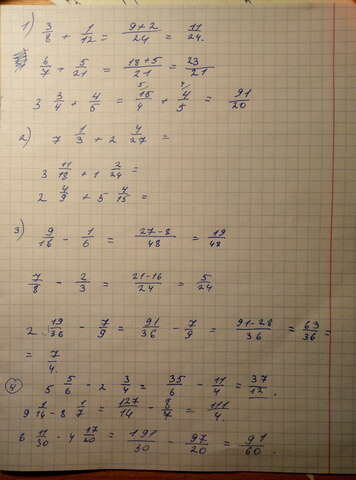 1) 3/8 + 1/12 = 9+2/24 = 11/24.
6/7 + 5/21 = 18+5/21 = 23/21
3 3/4 + 4/5 = 15/4 + 4/5 = 91/20
2) 7 1/3 + 2 4/27 =
3 11/18 + 1 2/24 =
2 4/9 + 5 4/15 =
3) 9/16 - 1/6 = 27-8/48 = 19/48
7/8 - 2/3 = 21-16/24 = 5/24
2 19/36 - 7/9 = 91/36 - 7/9 = 91-28/36 = 63/36 =
= 7/4.
4) 5 5/6 - 2 3/4 = 35/6 - 11/4 = 37/12.
9 1/14 - 8 1/7 = 127/14 - 8/7 = 111/4.
6 11/30 - 4 17/20 = 191/30 - 97/20 = 91/60.